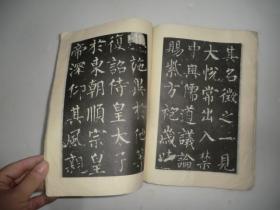 其名徵之一見
大悅常出入禁
中與儒道議論
賜紫方袍歲時
施異於他等
復詔侍皇太子
於東朝順宗皇
帝深仰其風親